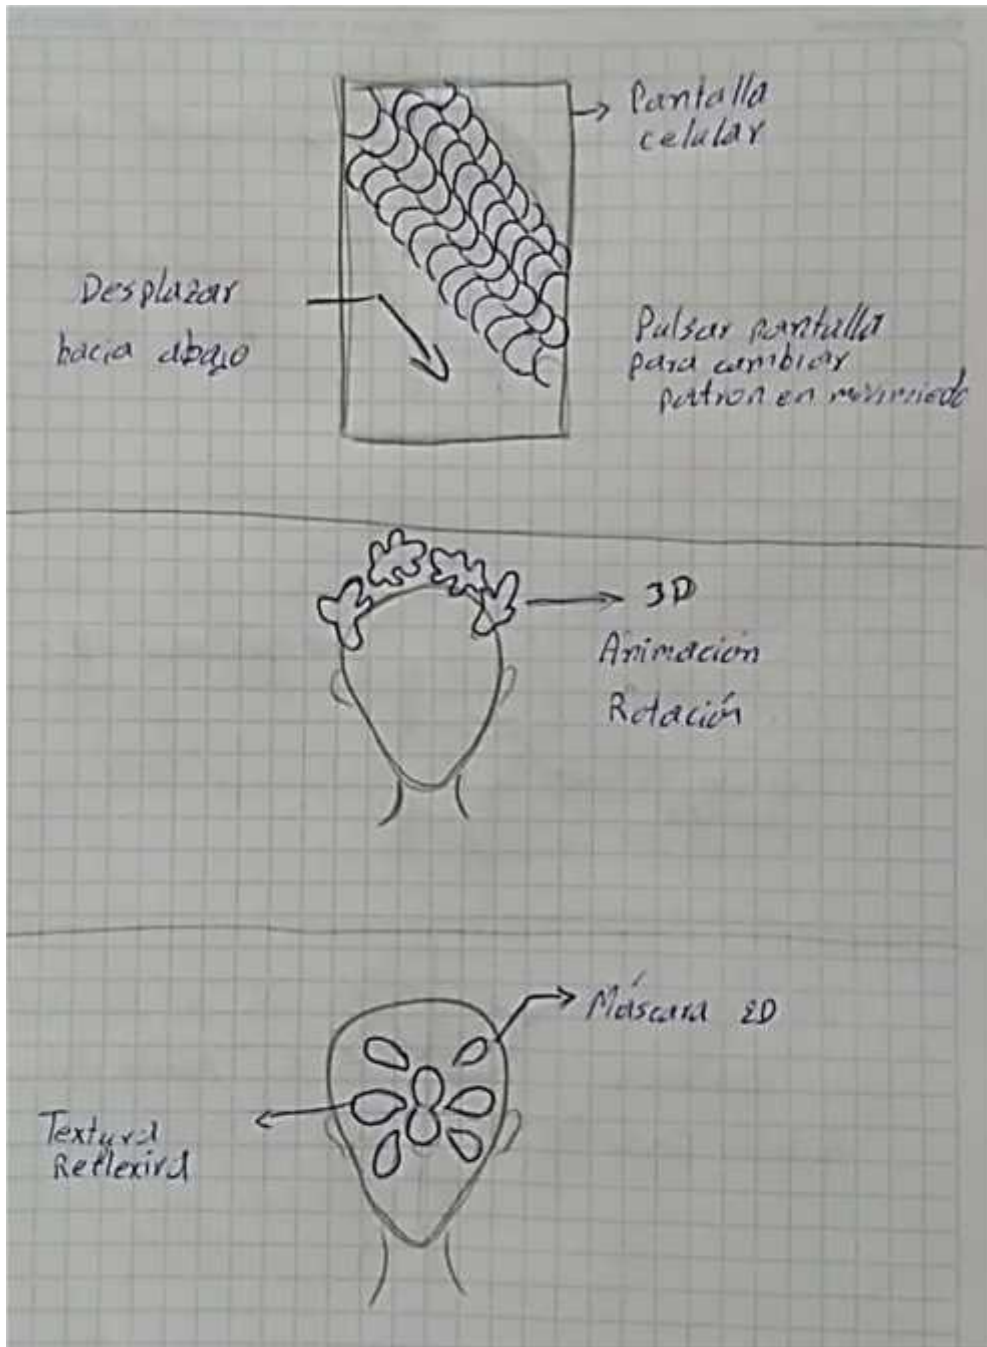 Pantalla
celular
Desplazar
hacia abajo
Pulsar pantalla
para cambiar
patron en movimiedo
3D
Animación
Rotación
Máscara 2D
Textura
Reflexiva